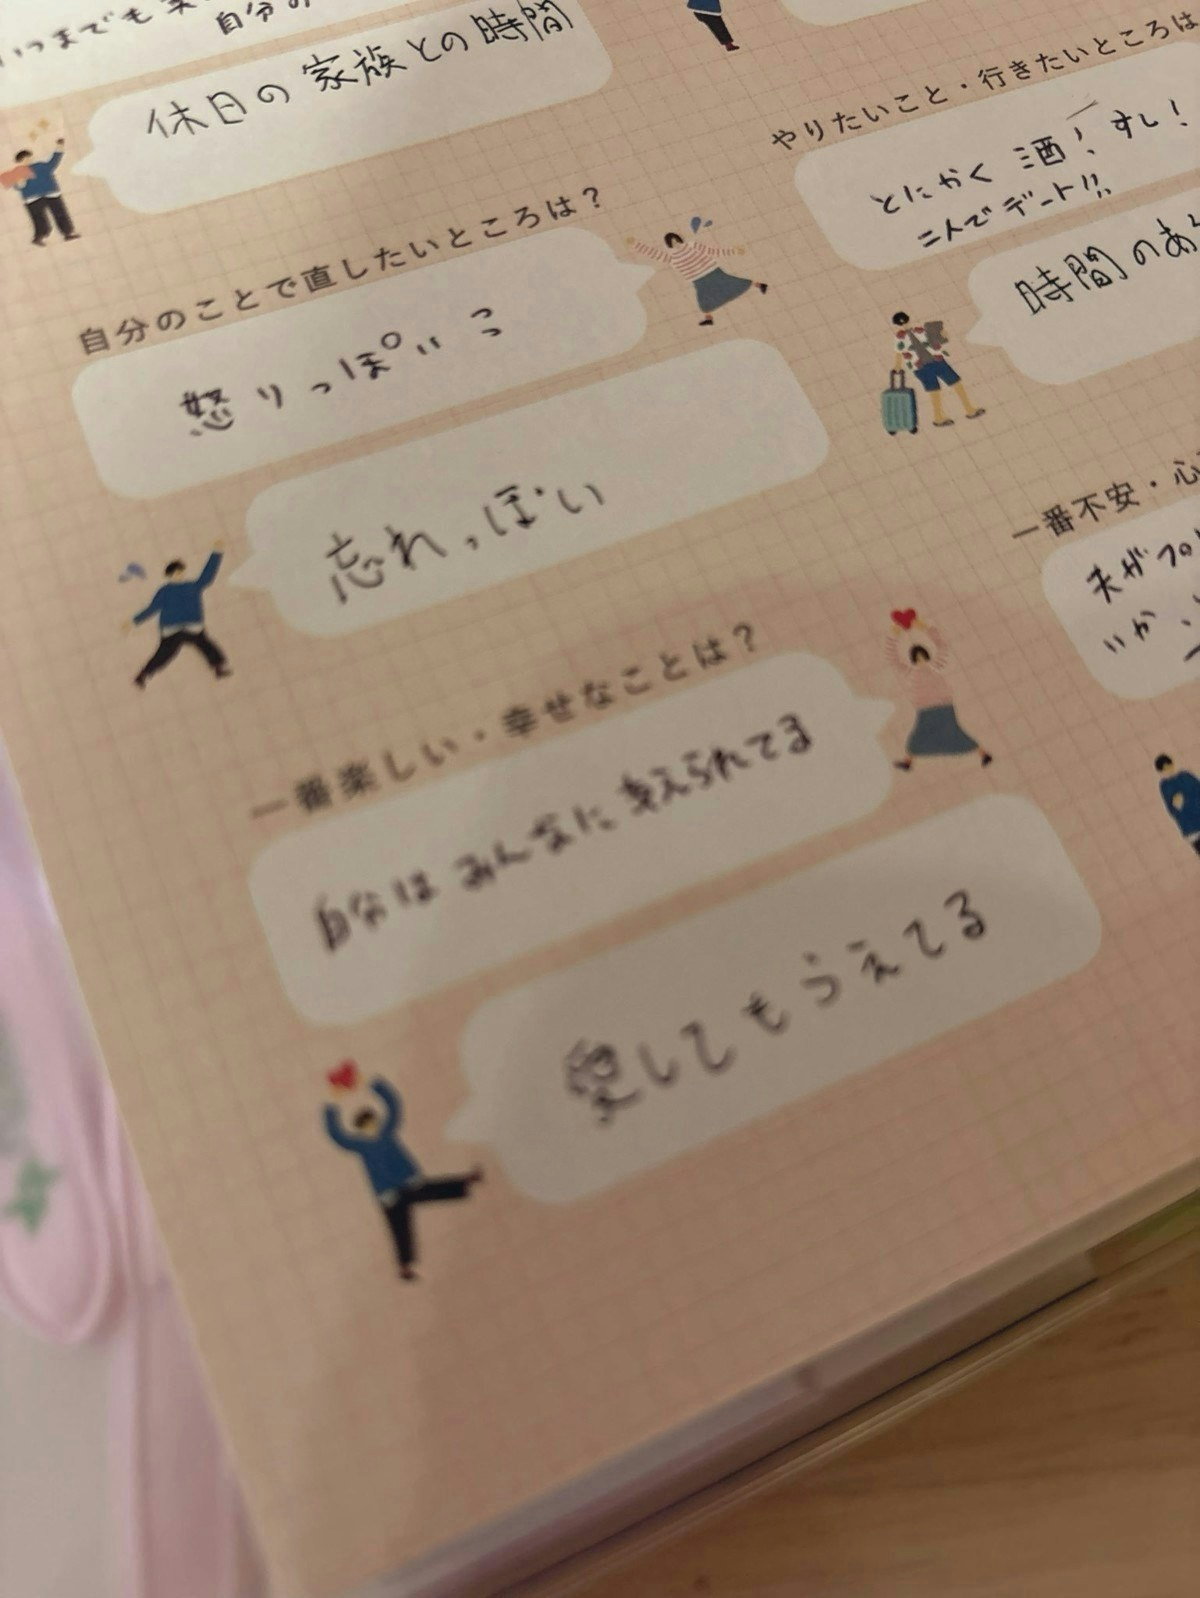 いつまでも
自分の
休日の家族との時間
自分のことで直したいところは？
怒りっぽいこ
忘れっぽい
一番楽しい・幸せなことは？
自分はみんなに支えられてる
愛してもらえてる
やりたいこと・行きたいところは
とにかく酒！すし！
二人でデート!!
時間のあ
一番不安・心
夫がフロ
いか、